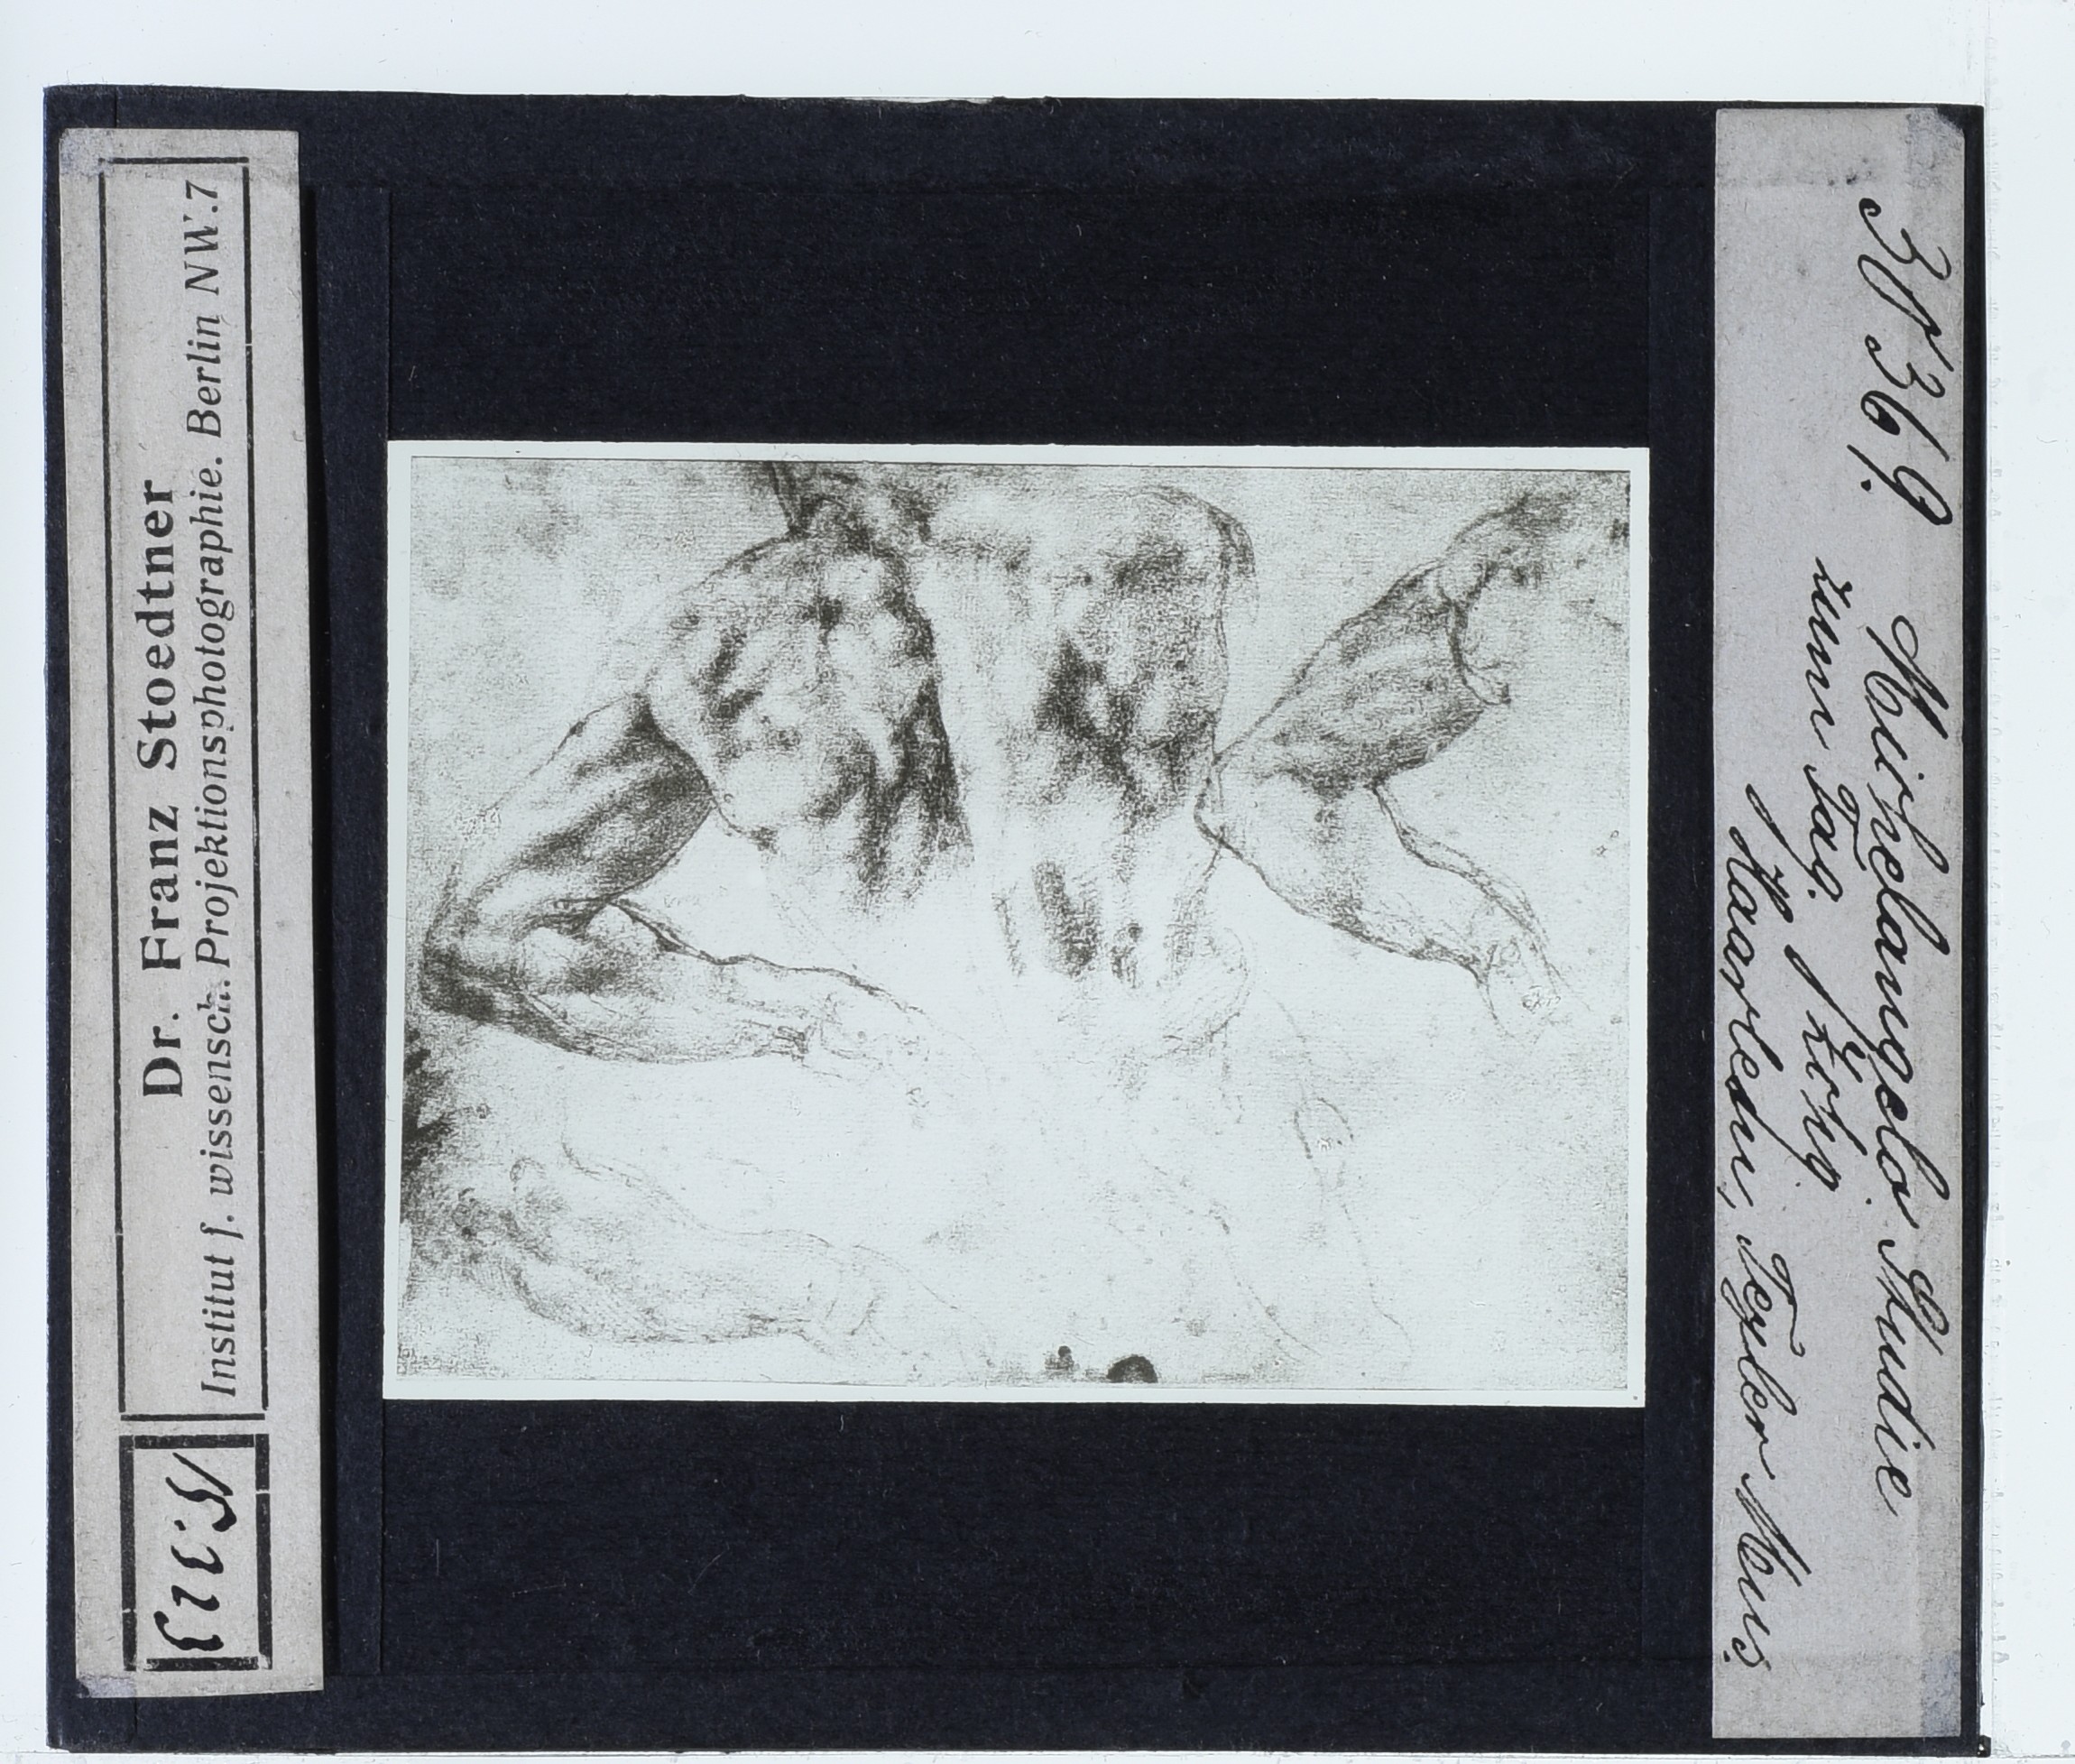 Dr. Franz Stoedtner
Institut f. wissensch. Projektionsphotographie. Berlin NW.7
Michelangelo. Studie
zum Tag.
Haarlem, Teyler Mus.